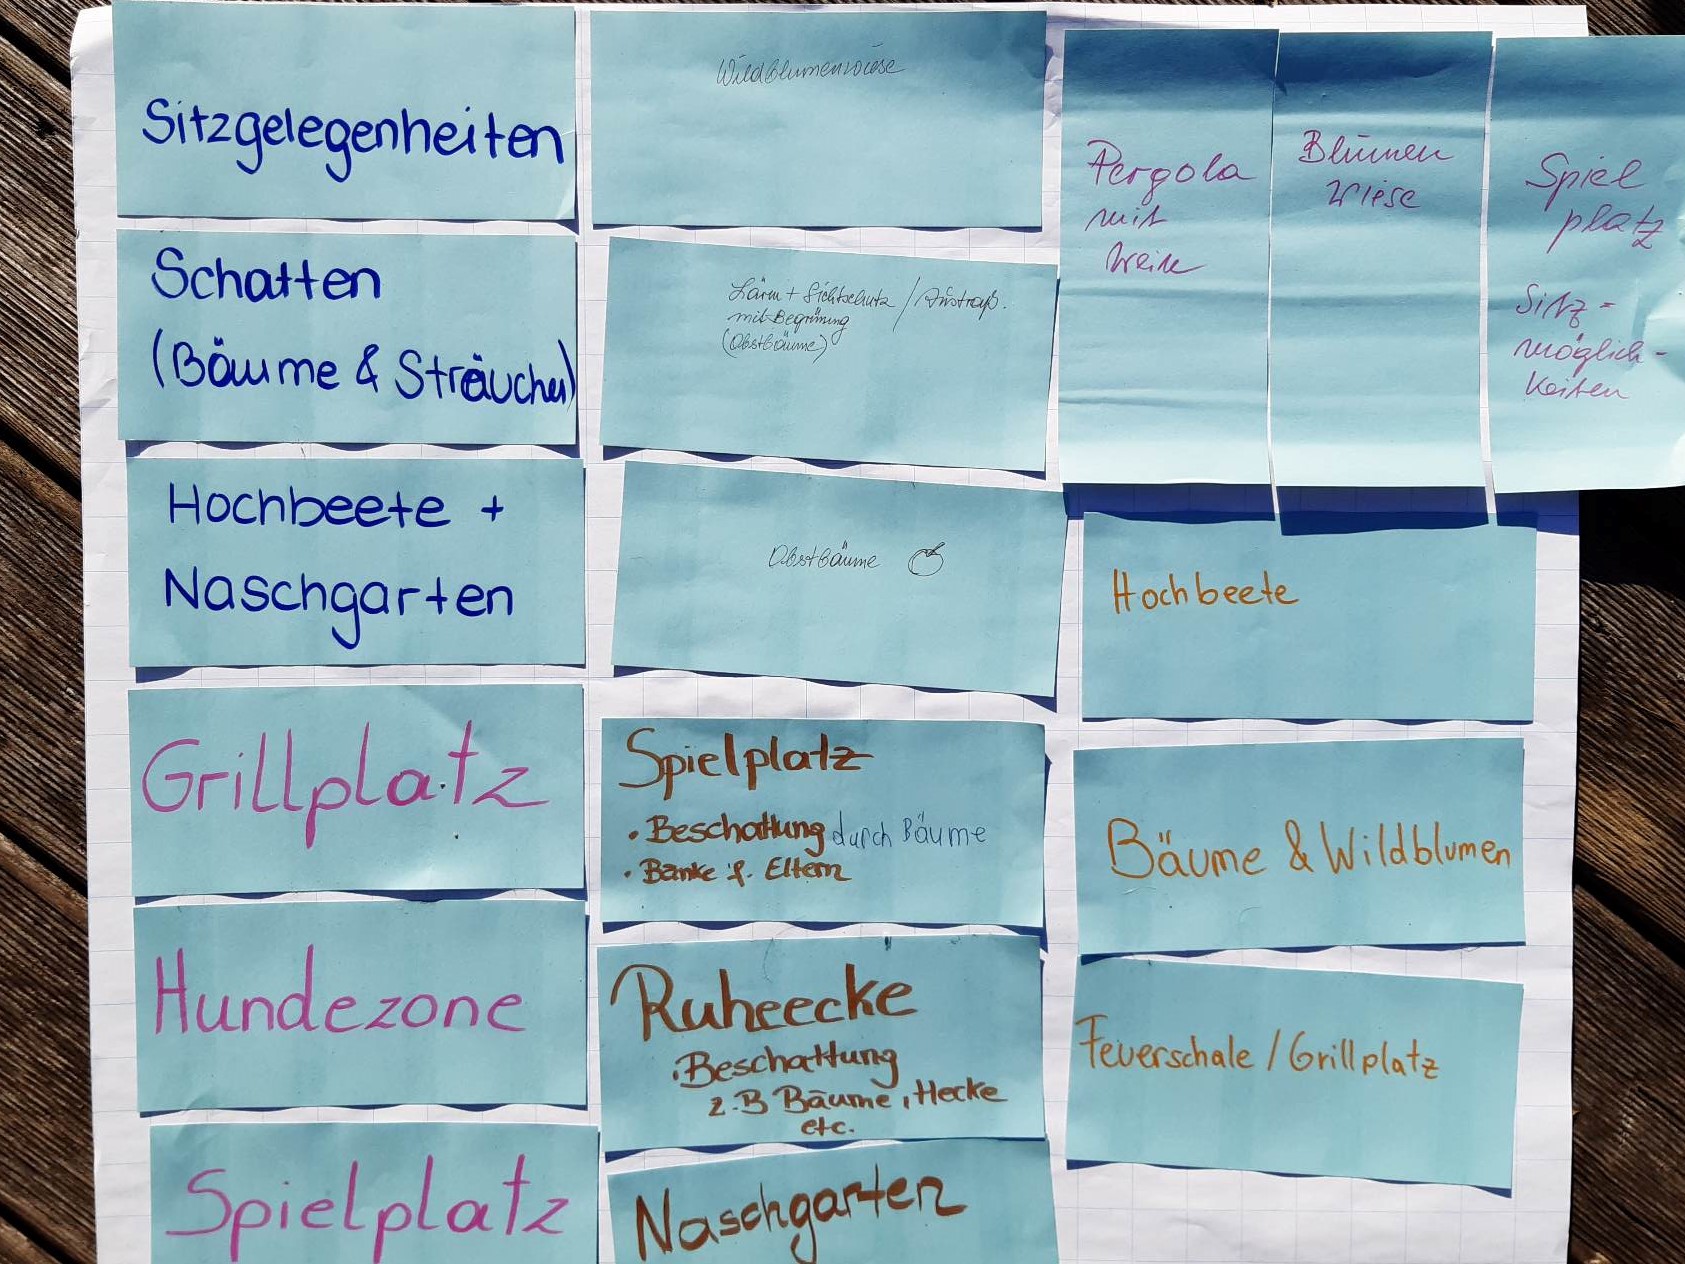 Sitzgelegenheiten
Schatten
(Bäume & Sträucher)
Hochbeete +
Naschgarten
Grillplatz
Hundezone
Spielplatz
Wildblumenwiese
Lärm + Sichtschutz /
mit Begrünung
(Obstbäume)
Obstbäume
Spielplatz
• Beschattung durch Bäume
• Bänke f. Eltern
Ruheecke
• Beschattung
z.B Bäume, Hecke
etc.
Naschgarten
Pergola
mit
Wein
Blumen
wiese
Spiel
platz
Sitz-
möglich-
keiten
Hochbeete
Bäume & Wildblumen
Feuerschale / Grillplatz